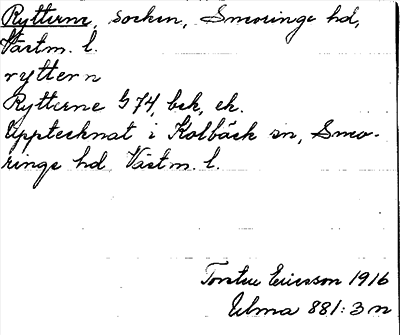 Rytterne, socken, Snevringe hd,
Västm. l.
ryttern
Rytterne G 74, bek, ek.
Upptecknat i Kolbäck sn, Snev-
ringe hd Västm. l.
Torsten Ericsson 1916
Ulma 881:3